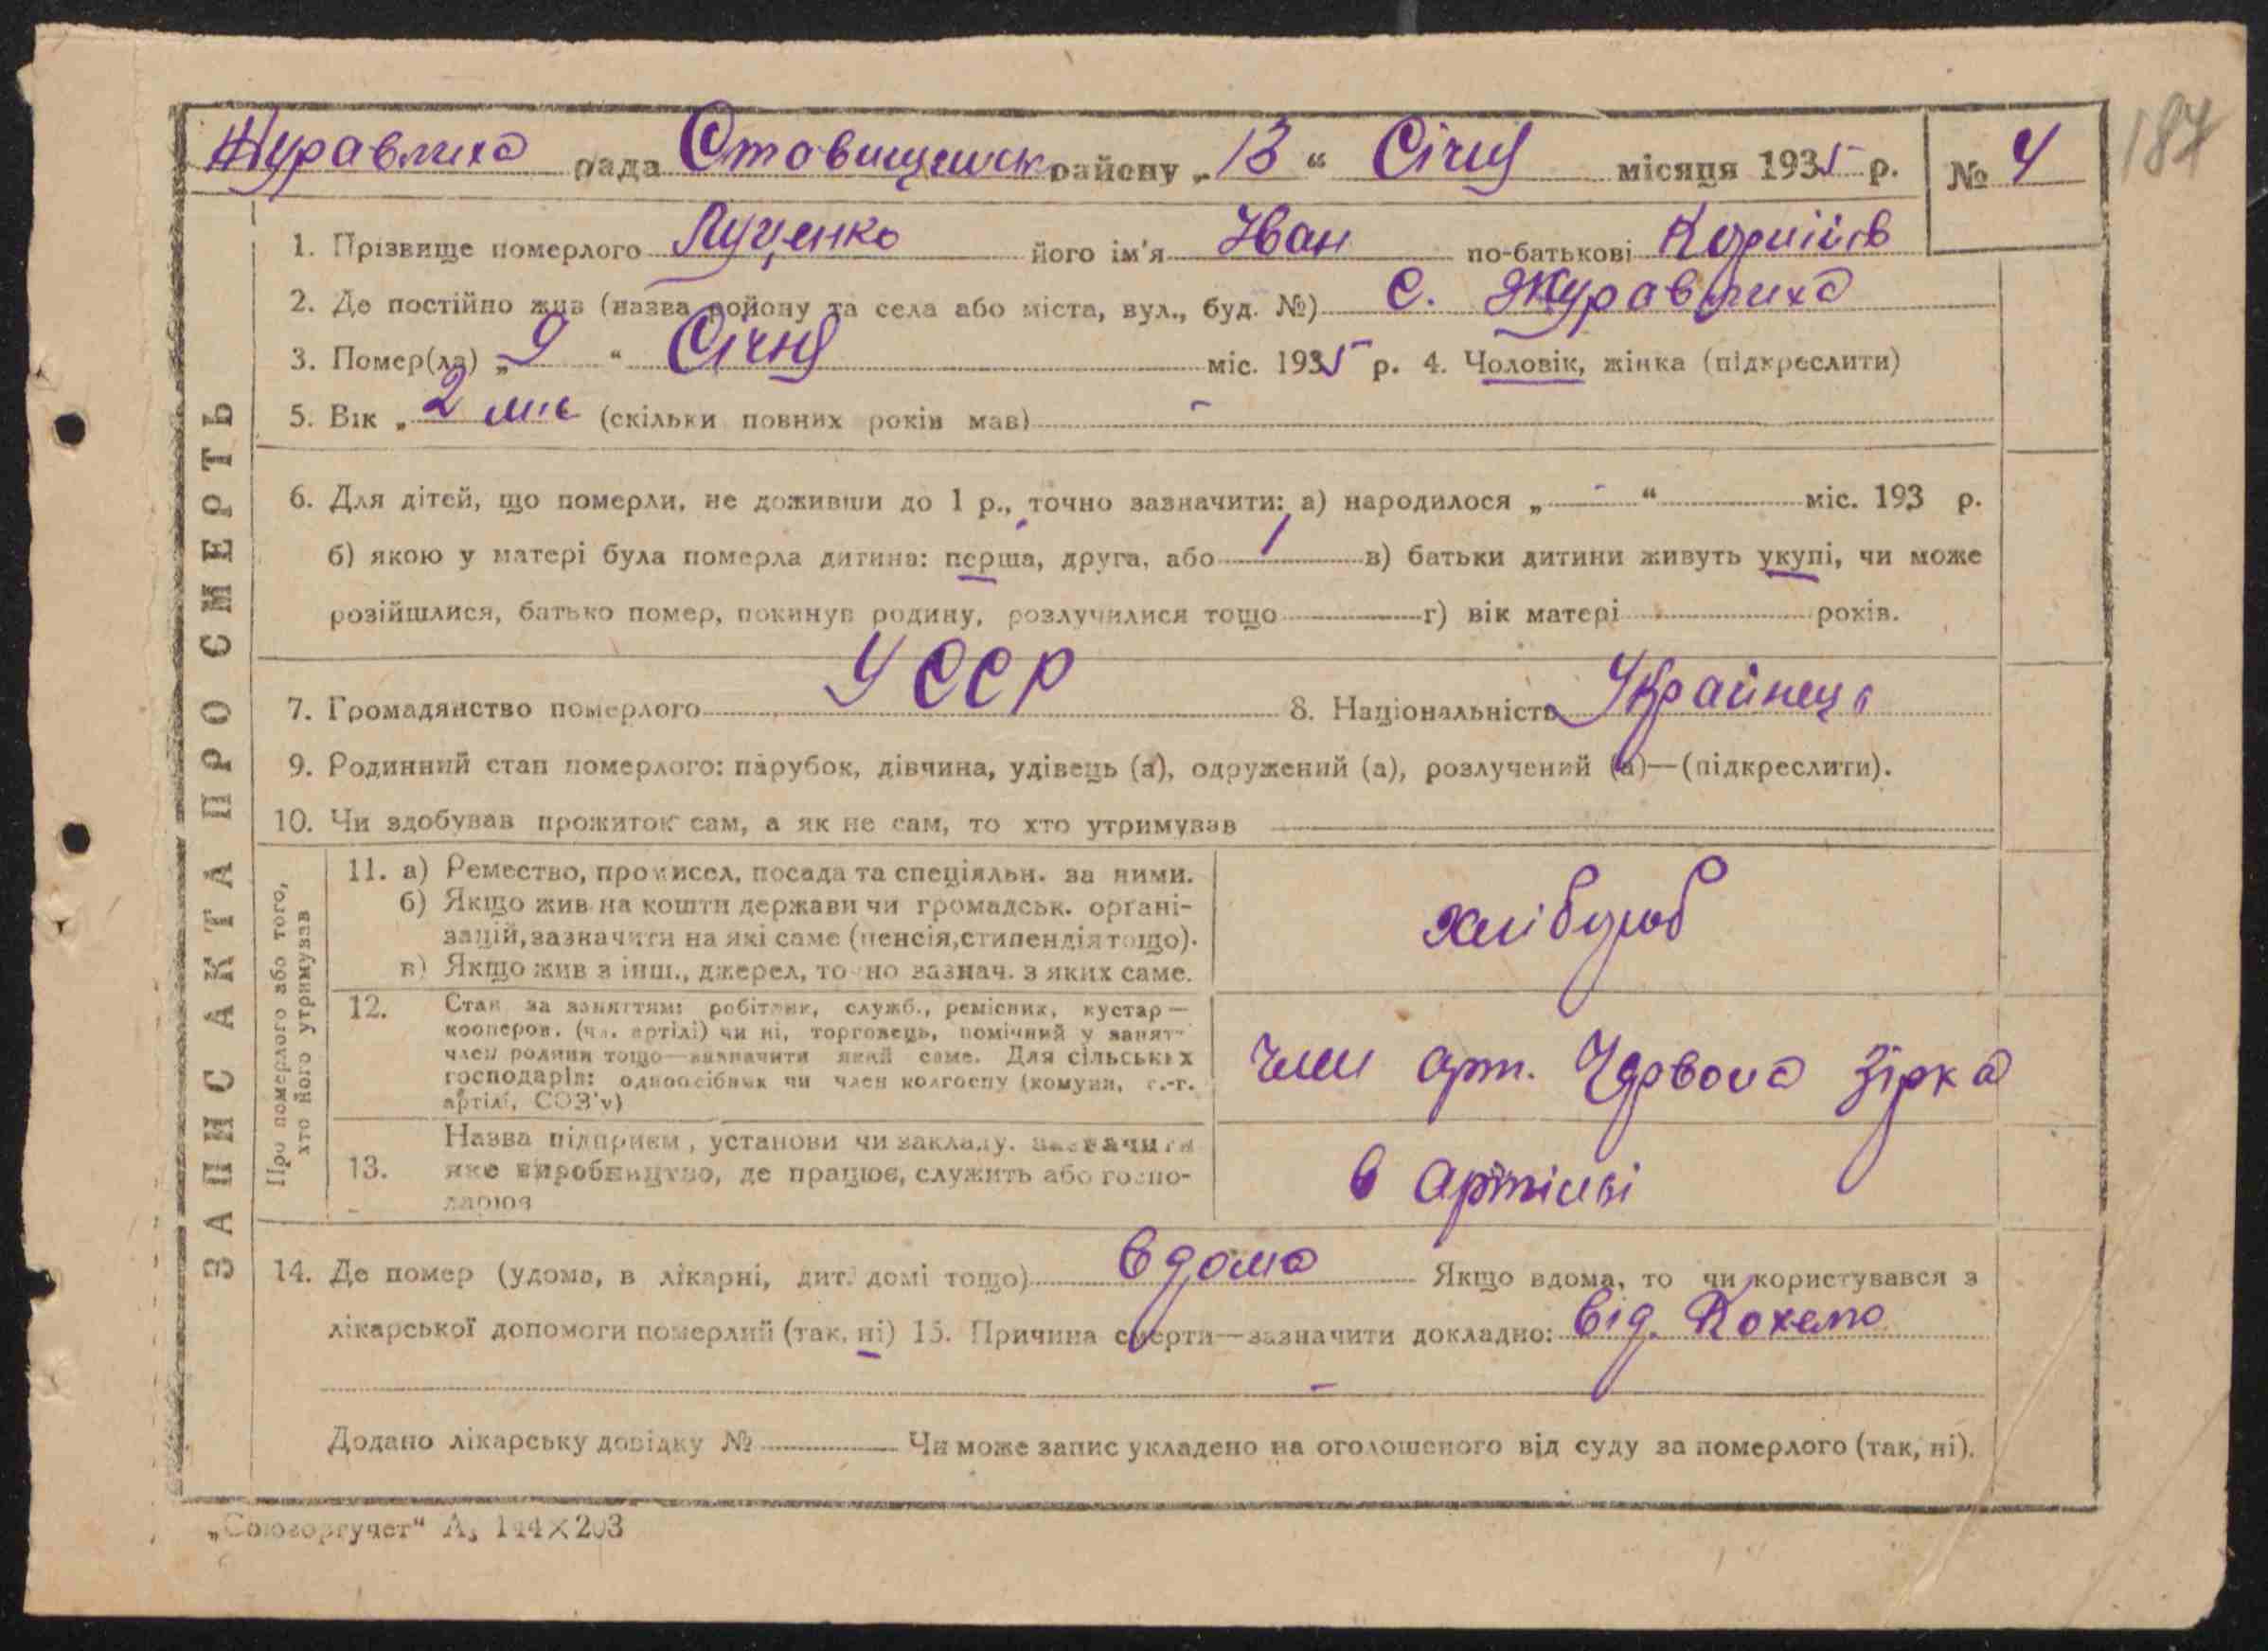 187
Журавлиха рада Ставищенск району „13“ Січня місяця 1935 р. № 4
1. Прізвище померлого Луценко його ім'я Іван по-батькові Корнійов
2. Де постійно жив (назва району та села або міста, вул., буд. №) С. Журавлиха
3. Помер(ла) „9“ Січня міс. 1935 р. 4. Чоловік, жінка (підкреслити)
5. Вік „2 міс (скільки повних років мав) -
6. Для дітей, що померли, не доживши до 1 р., точно зазначити: а) народилося „-“ міс. 193 р.
б) якою у матері була померла дитина: перша, друга, або 1 в) батьки дитини живуть укупі, чи може
розійшлися, батько помер, покинув родину, розлучилися тощо г) вік матері років.
7. Громадянство померлого УССР 8. Національність Українець
9. Родинний стан померлого: парубок, дівчина, удівець (а), одружений (а), розлучений (а)—(підкреслити).
10. Чи здобував прожиток сам, а як не сам, то хто утримував
ЗАПИС АКТА ПРО СМЕРТЬ
Про померлого або того,
хто його утримував
11. а) Ремество, промисел, посада та спеціяльн. за ними.
б) Якщо жив на кошти держави чи громадськ. органі-
зацій, зазначити на які саме (пенсія, стипендія тощо).
в) Якщо жив з інш., джерел, точно зазнач. з яких саме.
хлібороб
12. Стан за заняттям: робітник, служб., ремісник, кустар —
кооперов. (чл. артілі) чи ні, торговець, помічний у занят-
член родини тощо—зазначити який саме. Для сільських
господарів: одноосібник чи член колгоспу (комуни, с.-г.
артілі, СОЗ'у)
член арт. Червона Зірка
13. Назва підприєм, установи чи закладу, зазначити
яке виробництво, де працює, служить або госпо-
дарює
в Артілі
14. Де помер (удома, в лікарні, дит. домі тощо) вдома Якщо вдома, то чи користувався з
лікарської допомоги померлий (так, ні) 15. Причина смерти—зазначити докладно: від. Кохлюша
Додано лікарську довідку № Чи може запис укладено на оголошеного від суду за померлого (так, ні).
„Союзоргучет“ А₅ 144×203